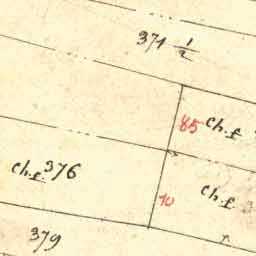 371 1/2
85 ch.f.
ch.f. 376
10 ch.f.
379